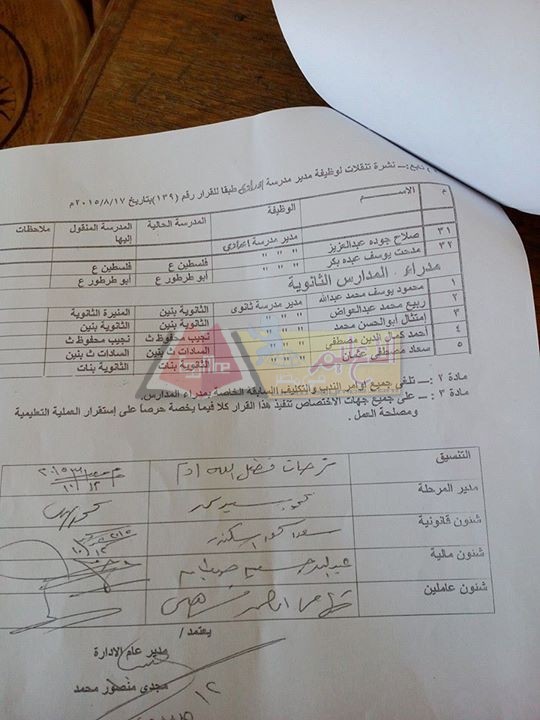 تابع :ـ نشرة تنقلات لوظيفة مدير مدرسة اعدادى طبقا للقرار رقم (١٣٩) بتاريخ ٢٠١٥/٨/١٧م
م الاســـم الوظيفة المدرسة الحالية المدرسة المنقول إليها ملاحظات
٣١ صلاح جوده عبدالعزيز مدير مدرسة اعدادى فلسطين ع
٣٢ مدحت يوسف عبده بكر " " " أبو طرطور ع
مدراء المدارس الثانوية
١ محمود يوسف محمد عبدالله مدير مدرسة ثانوى الثانوية بنين المنيرة الثانوية
٢ ربيع محمد عبدالعواض " " " الثانوية بنين الثانوية بنين
٣ إمتثال أبوالحسن محمد " " " نجيب محفوظ ث نجيب محفوظ ث
٤ أحمد كمال الدين مصطفى " " " السادات ث بنين السادات ث بنين
٥ سعاد مصطفى عثمان " " " الثانوية بنات الثانوية بنات
مادة ٢ :ـ تلغى جميع أوامر الندب والتكليف السابقة الخاصة بمدراء المدارس.
مادة ٣ :ـ على جميع جهات الاختصاص تنفيذ هذا القرار كلا فيما يخصة حرصاً على إستقرار العملية التعليمية
ومصلحة العمل.
التنسيق
مدير المرحلة
شئون قانونية
شئون مالية
شئون عاملين
يعتمد/
مدير عام الادارة
مجدي منصور محمد